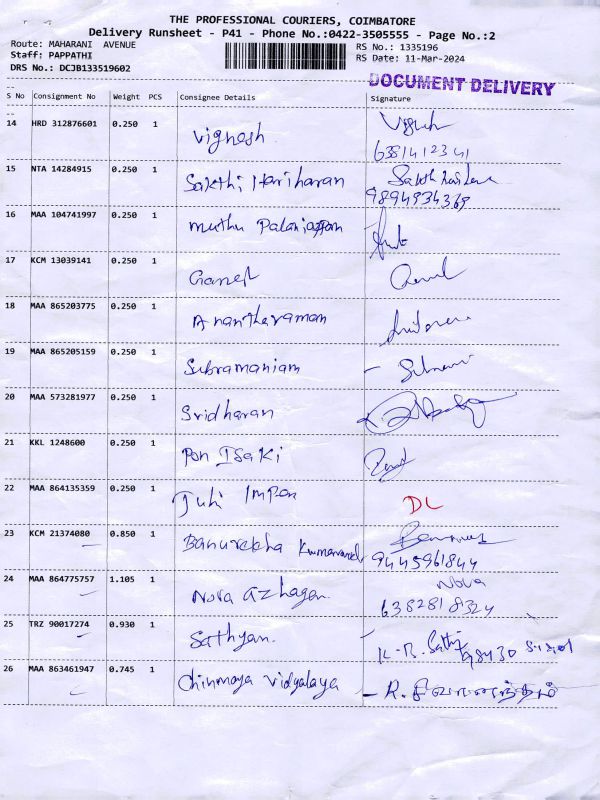 THE PROFESSIONAL COURIERS, COIMBATORE
Delivery Runsheet - P41 - Phone No.:0422-3505555 - Page No.:2
Route: MAHARANI AVENUE
RS No.: 1335196
Staff: PAPPATHI
RS Date: 11-Mar-2024
DRS No.: DCJB133519602
DOCUMENT DELIVERY
S No Consignment No Weight PCS Consignee Details Signature
14 HRD 312876601 0.250 1 Vignesh
6381412341
15 NTA 14284915 0.250 1 Sakthi Hariharan
9894934369
16 MAA 104741997 0.250 1 Muthu Palaniappan
17 KCM 13039141 0.250 1 Ganesh
18 MAA 865203775 0.250 1 Anantheraman
19 MAA 865205159 0.250 1 Subramaniam
20 MAA 573281977 0.250 1 Sridharan
21 KKL 1248600 0.250 1 Pon Isaki
22 MAA 864135359 0.250 1 Juhi Impex DL
23 KCM 21374080 0.850 1 Banurekha
9445961844
24 MAA 864775757 1.105 1 Nova Azhagan Nova
6382818324
25 TRZ 90017274 0.930 1 Sathyan K-R. Sathy
98430
26 MAA 863461947 0.745 1 Chinmaya Vidyalaya - R. சிவானந்தம்